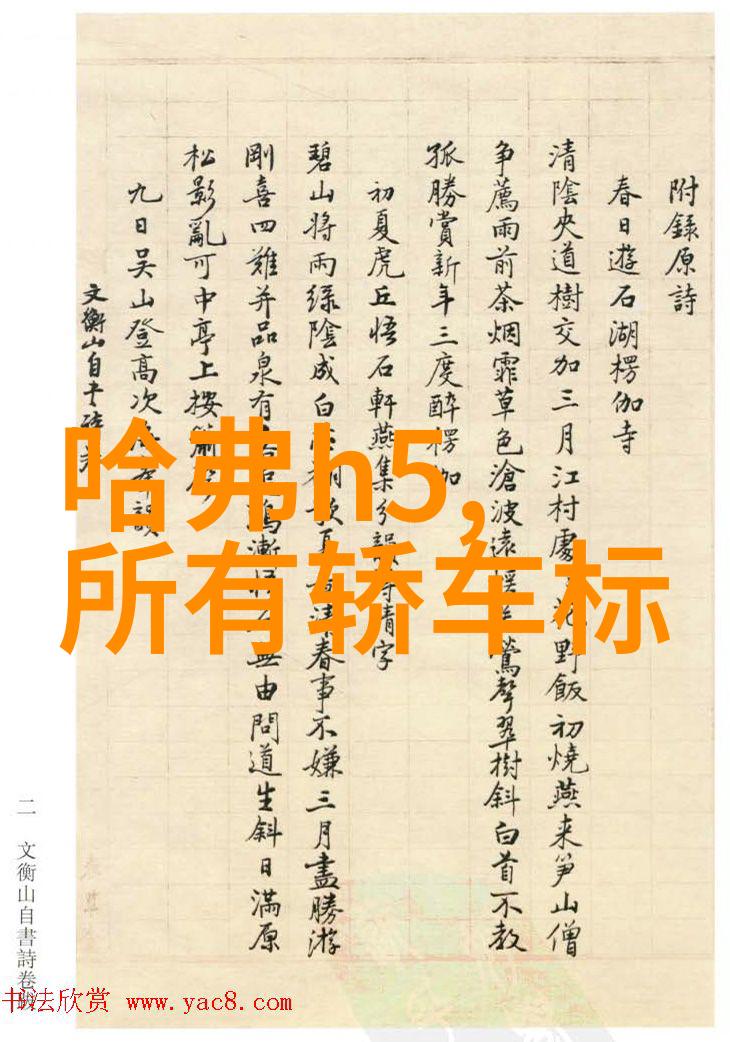 附錄原詩
春日遊石湖楞伽寺
清陰夾道樹交加三月江村處花野飯初燒燕来笋山僧
争薦雨前茶烟霏草色滄波遠鶯聲翠樹斜白首不教
孤勝賞新年三度醉楞伽
初夏虎丘悟石軒燕集分韻得青字
碧山将雨綠陰成白夏清春事不嫌三月盡勝游
剛喜四難并品泉有漸無由問道生斜日滿原
松影亂可中亭上按
九日吴山登高次韻
文衡山自书诗卷
哈弗h5,
所有轿车标
二 文衡山自書詩卷跋
书法欣赏 www.yac8.com